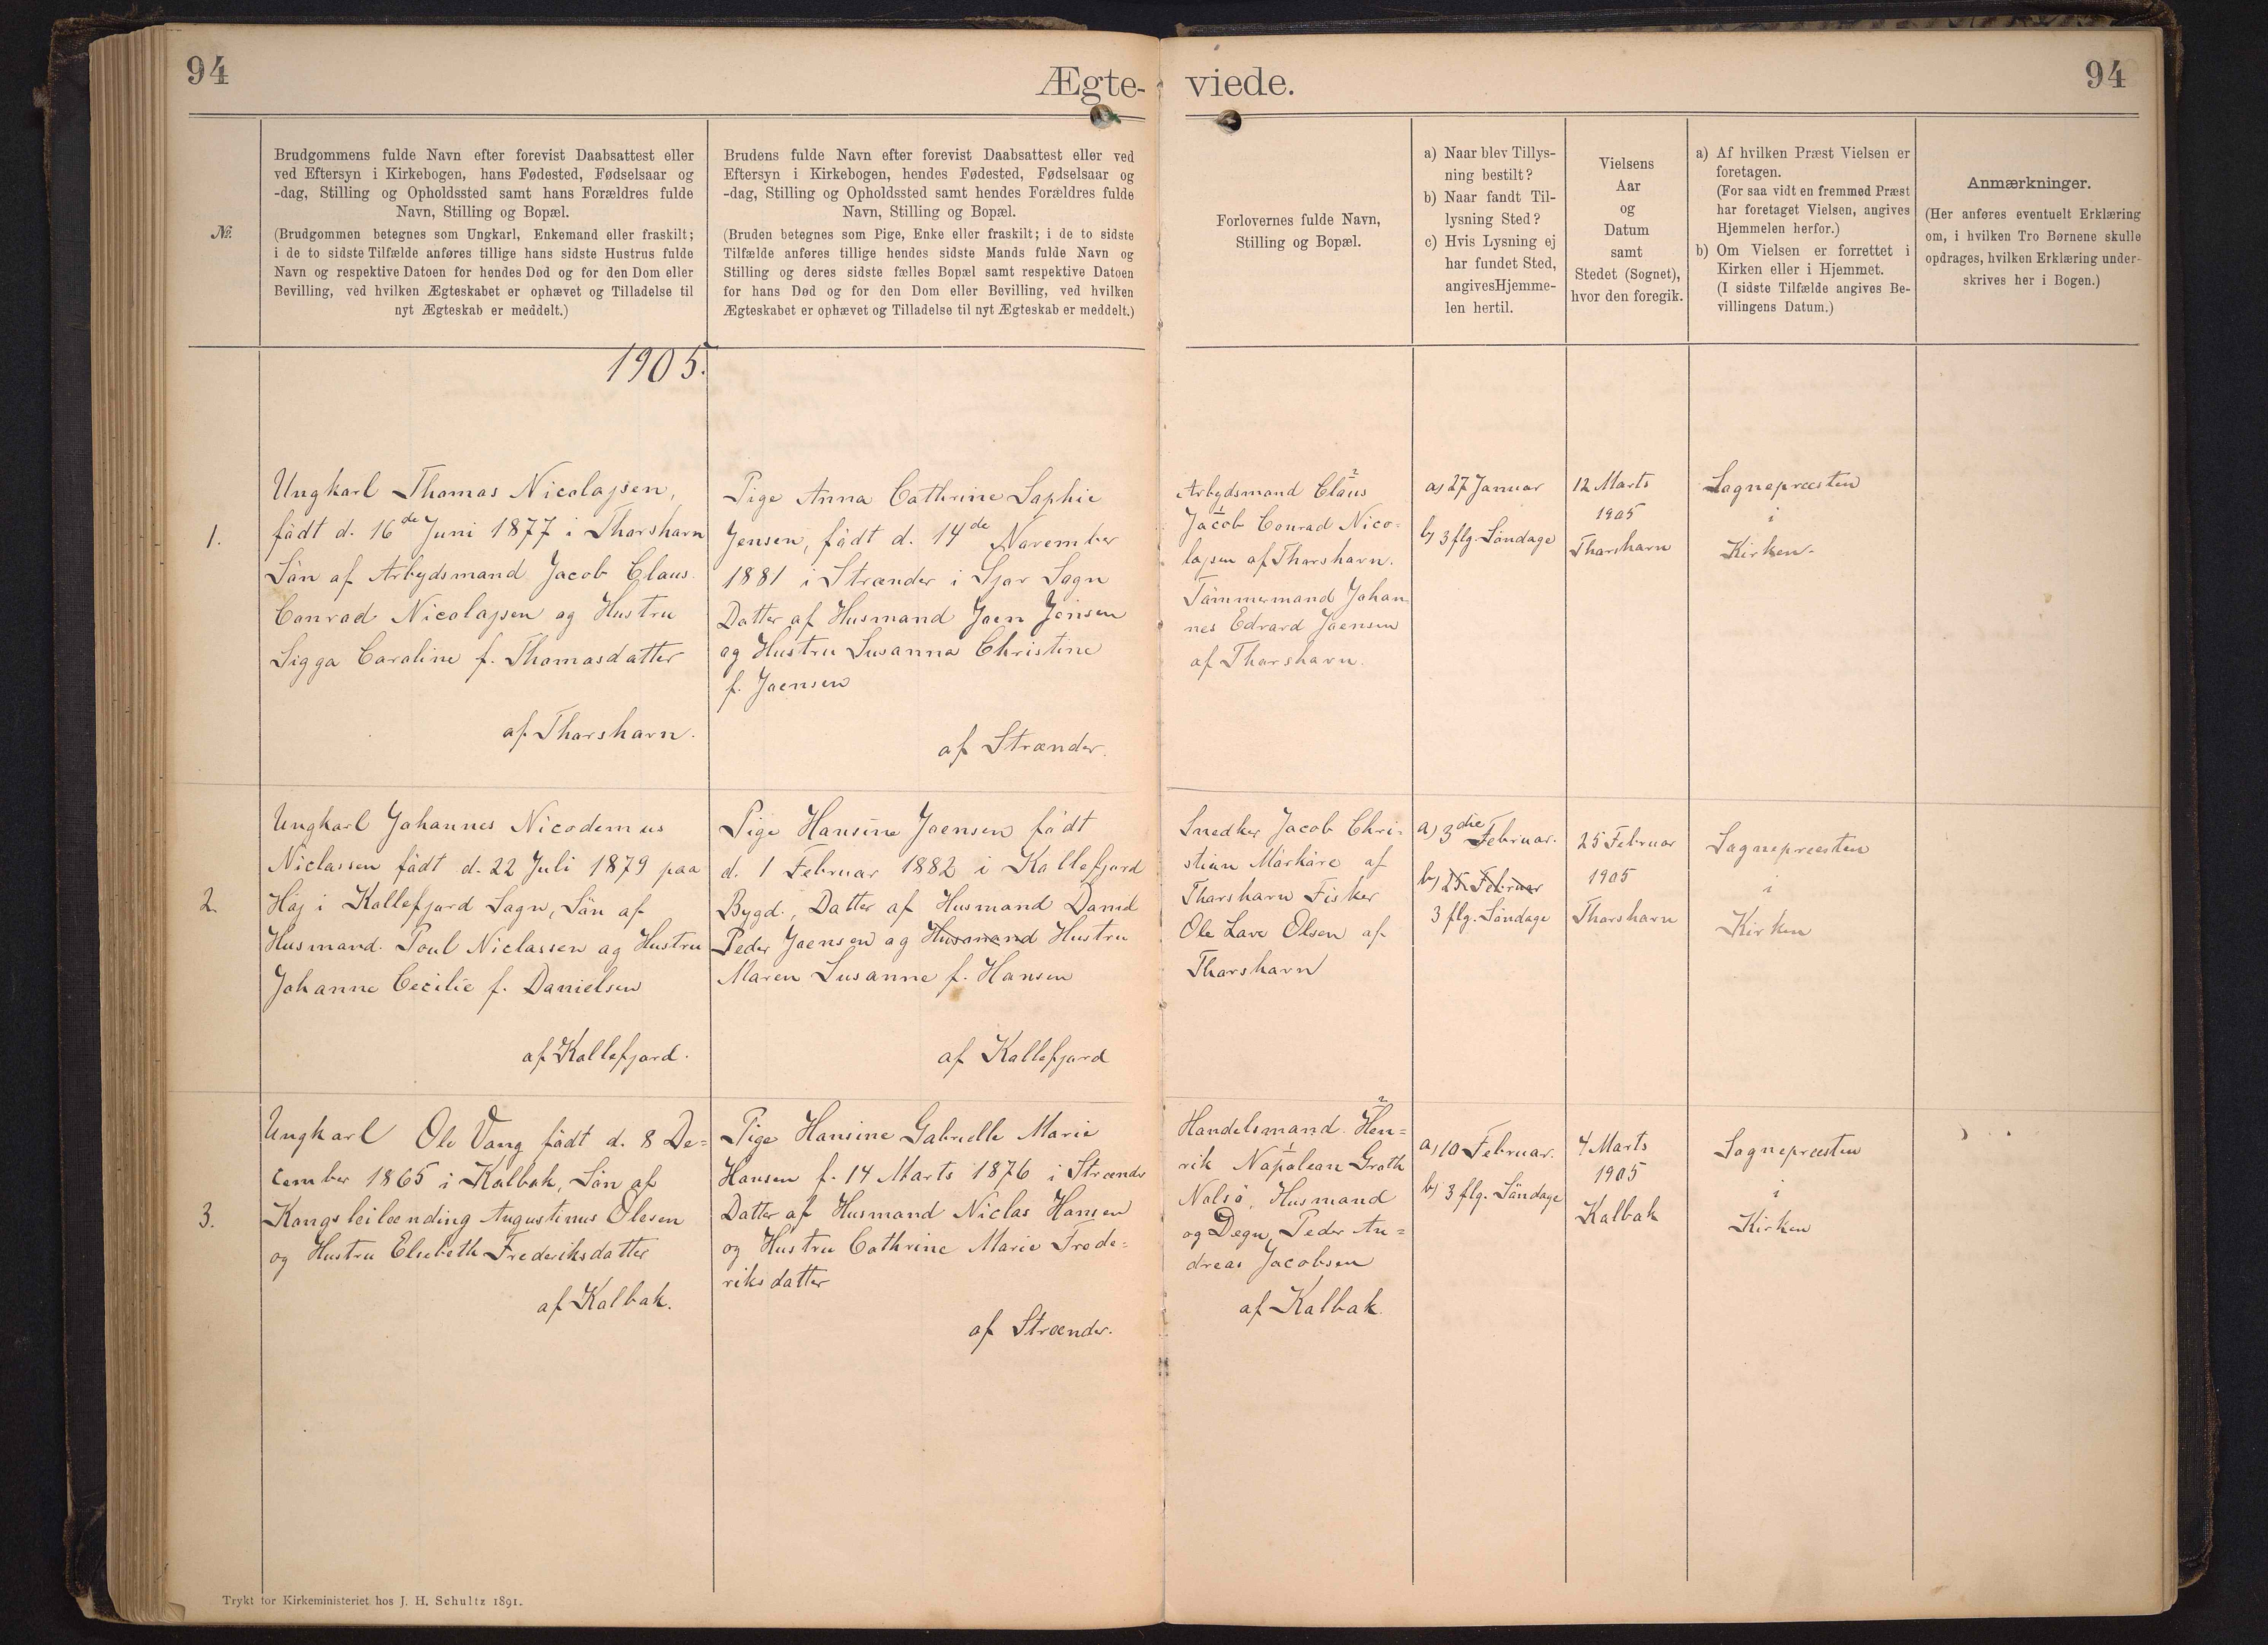 94
Ægte-
viede.
94
№
Brudgommens fulde Navn efter forevist Daabsattest eller
ved Eftersyn i Kirkebogen, hans Fødested, Fødselsaar og
-dag, Stilling og Opholdssted samt hans Forældres fulde
Navn, Stilling og Bopæl.
(Brudgommen betegnes som Ungkarl, Enkemand eller fraskilt;
i de to sidste Tilfælde anføres tillige hans sidste Hustrus fulde
Navn og respektive Datoen for hendes Død og for den Dom eller
Bevilling, ved hvilken Ægteskabet er ophævet og Tilladelse til
nyt Ægteskab er meddelt.)
Brudens fulde Navn efter forevist Daabsattest eller ved
Eftersyn i Kirkebogen, hendes Fødested, Fødselsaar og
-dag, Stilling og Opholdssted samt hendes Forældres fulde
Navn, Stilling og Bopæl.
(Bruden betegnes som Pige, Enke eller fraskilt; i de to sidste
Tilfælde anføres tillige hendes sidste Mands fulde Navn og
Stilling og deres sidste fælles Bopæl samt respektive Datoen
for hans Død og for den Dom eller Bevilling, ved hvilken
Ægteskabet er ophævet og Tilladelse til nyt Ægteskab er meddelt.)
Forlovernes fulde Navn,
Stilling og Bopæl.
a) Naar blev Tillys-
ning bestilt?
b) Naar fandt Til-
lysning Sted?
c) Hvis Lysning ej
har fundet Sted,
angivesHjemme-
len hertil.
Vielsens
Aar
og
Datum
samt
Stedet (Sognet),
hvor den foregik.
a) Af hvilken Præst Vielsen er
foretagen.
(For saa vidt en fremmed Præst
har foretaget Vielsen, angives
Hjemmelen herfor.)
b) Om Vielsen er forrettet i
Kirken eller i Hjemmet.
(I sidste Tilfælde angives Be-
villingens Datum.)
Anmærkninger.
(Her anføres eventuelt Erklæring
om, i hvilken Tro Børnene skulle
opdrages, hvilken Erklæring under-
skrives her i Bogen.)
1905.
1.
Ungkarl Thomas Nicolajsen,
født d. 16de Juni 1877 i Thorshavn
Søn af Arbejdsmand Jacob Claus
Conrad Nicolajsen og Hustru
Sigga Caroline f. Thomasdatter
af Thorshavn.
Pige Anna Cathrine Sophie
Jensen, født d. 14de November
1881 i Strænder i Sjov Sogn
Datter af Husmand Joen Jensen
og Hustru Susanna Christine
f. Joensen
af Strænder.
Arbejdsmand Claus 2
Jacob 1 Conrad Nico-
lajsen af Thorshavn.
Tømmermand Johan-
nes Edvard Joensen
af Thorshavn.
a) 27 Januar
b) 3 flg. Søndage
12 Marts
1905
Thorshavn
Sognepræsten
i
Kirken
2.
Ungkarl Johannes Nicodemus
Niclassen født d. 22 Juli 1879 paa
Høj i Kollefjord Sogn, Søn af
Husmand Poul Niclassen og Hustru
Johanne Cecilie f. Danielsen
af Kollefjord.
Pige Hansine Joensen født
d. 1 Februar 1882 i Kollefjord
Bygd., Datter af Husmand David
Peder Joensen og Husmand Hustru
Maren Susanne f. Hansen
af Kollefjord
Snedker Jacob Chri-
stian Mørkøre af
Thorshavn Fisker
Ole Lave Olsen af
Thorshavn
a) 3die Februar.
b) 25 Februar
3 flg. Søndage
25 Februar
1905
Thorshavn
Sognepræsten
i
Kirken
3.
Ungkarl Ole Vang født d. 8 De-
cember 1865 i Kalbak, Søn af
Kongsleilænding Augustinus Olesen
og Hustru Elsebeth Frederiksdatter
af Kalbak.
Pige Hansine Gabrielle Marie
Hansen f. 14 Marts 1876 i Strænder
Datter af Husmand Niclas Hansen
og Hustru Cathrine Marie Frede-
riksdatter
af Strænder.
Handelsmand Hen- 2
rik Napolean 1 Groth
Nolsø, Husmand
og Degn, Peder An-
dreas Jacobsen
af Kalbak.
a) 10 Februar.
b) 3 flg. Søndage
4 Marts
1905
Kalbak
Sognepræsten
i
Kirken
Trykt for Kirkeministeriet hos J. H. Schultz 1891.